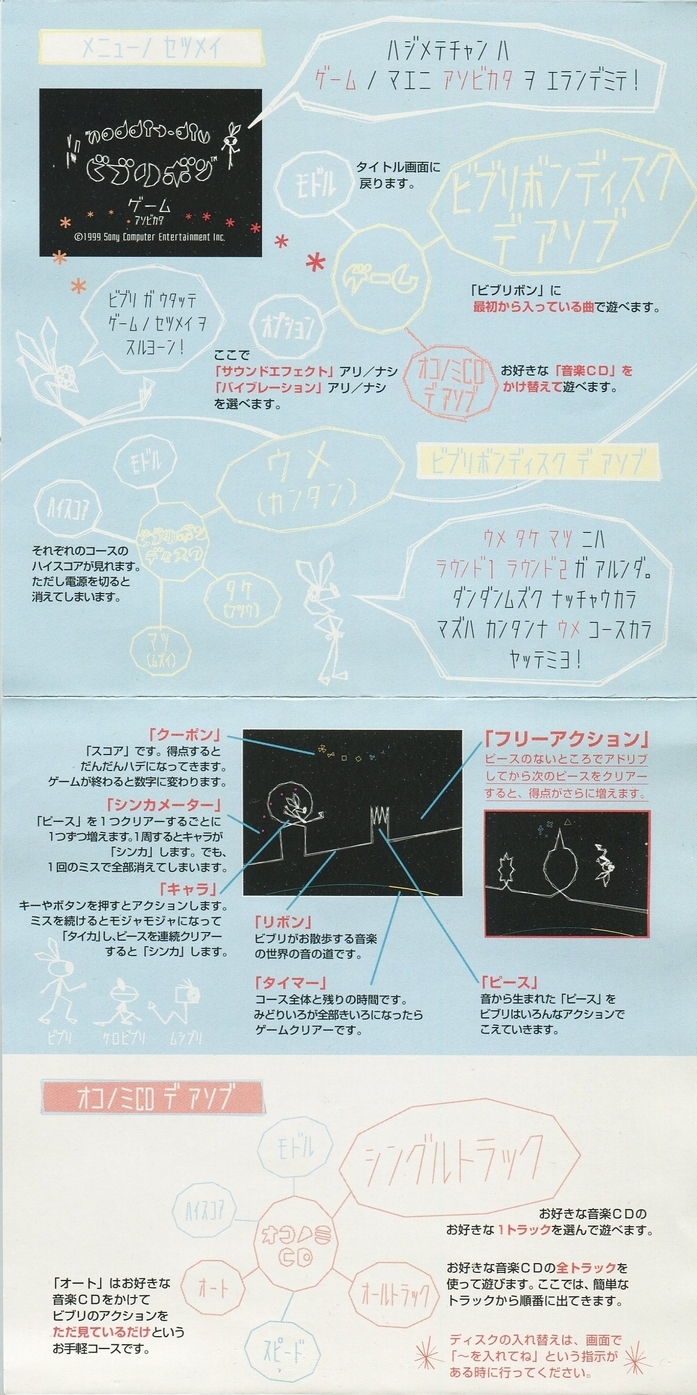 メニューノ セツメイ
ハジメテチャン ハ
ゲーム ノ マエニ アソビカタ ヲ エランデミテ!
ビブリボン™
ゲーム
アソビカタ
©1999 Sony Computer Entertainment Inc.
モドル
タイトル画面に
戻ります。
ビブリボンディスク
デ アソブ
ゲーム
「ビブリボン」に
最初から入っている曲で遊べます。
ビブリ ガ ウタッテ
ゲーム ノ セツメイ ヲ
スルヨーン!
オプション
ここで
「サウンドエフェクト」アリ/ナシ
「バイブレーション」アリ/ナシ
を選べます。
オコノミCD
デ アソブ
お好きな「音楽CD」を
かけ替えて遊べます。
ビブリボンディスク デ アソブ
モドル
ウメ
(カンタン)
ハイスコア
ビブリボン
ディスク
それぞれのコースの
ハイスコアが見れます。
ただし電源を切ると
消えてしまいます。
タケ
(フツウ)
マツ
(ムズイ)
ウメ タケ マツ ニハ
ラウンド1 ラウンド2 ガ アルンダ。
ダンダンムズク ナッチャウカラ
マズハ カンタンナ ウメ コースカラ
ヤッテミヨ!
「クーポン」
「スコア」です。得点すると
だんだんハデになってきます。
ゲームが終わると数字に変わります。
「シンカメーター」
「ピース」を1つクリアーするごとに
1つずつ増えます。1周するとキャラが
「シンカ」します。でも、
1回のミスで全部消えてしまいます。
「キャラ」
キーやボタンを押すとアクションします。
ミスを続けるとモジャモジャになって
「タイカ」し、ピースを連続クリアー
すると「シンカ」します。
ビブリ
ケロビブリ
ムシブリ
「リボン」
ビブリがお散歩する音楽
の世界の音の道です。
「タイマー」
コース全体と残りの時間です。
みどりいろが全部きいろになったら
ゲームクリアーです。
「フリーアクション」
ピースのないところでアドリブ
してから次のピースをクリアー
すると、得点がさらに増えます。
「ピース」
音から生まれた「ピース」を
ビブリはいろんなアクションで
こえていきます。
オコノミCD デ アソブ
モドル
シングルトラック
ハイスコア
オコノミ
CD
お好きな音楽CDの
お好きな1トラックを選んで遊べます。
オート
オールトラック
お好きな音楽CDの全トラックを
使って遊びます。ここでは、簡単な
トラックから順番に出てきます。
「オート」はお好きな
音楽CDをかけて
ビブリのアクションを
ただ見ているだけという
お手軽コースです。
スピード
ディスクの入れ替えは、画面で
「〜を入れてね」という指示が
ある時に行ってください。